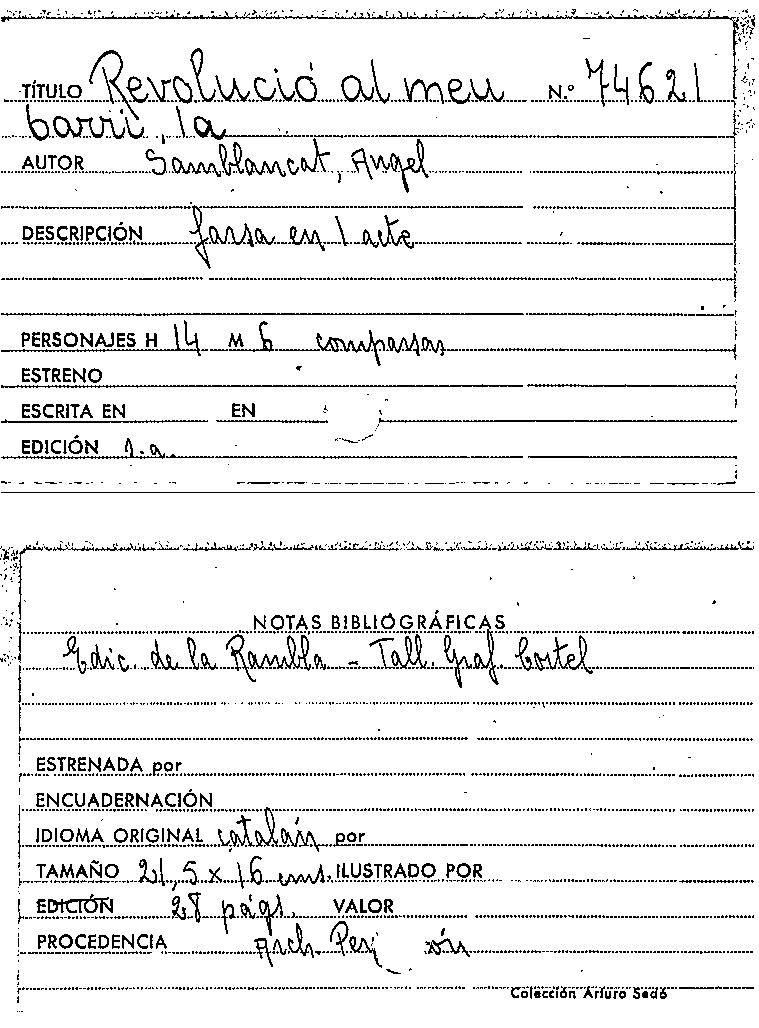 TÍTULO Revolució al meu N.º 74621
barri, la
AUTOR Samblancat, Angel
DESCRIPCIÓN farsa en 1 acte
PERSONAJES H 14 M 6 comparsas
ESTRENO
ESCRITA EN EN
EDICIÓN s.a.
NOTAS BIBLIOGRÁFICAS
Edic. de la Rambla - Tall. Graf. Cortel
ESTRENADA por
ENCUADERNACIÓN
IDIOMA ORIGINAL catalán por
TAMAÑO 21,5 x 16 cms. ILUSTRADO POR
EDICIÓN 28 págs. VALOR
PROCEDENCIA Arch.
Colección Arturo Sedó